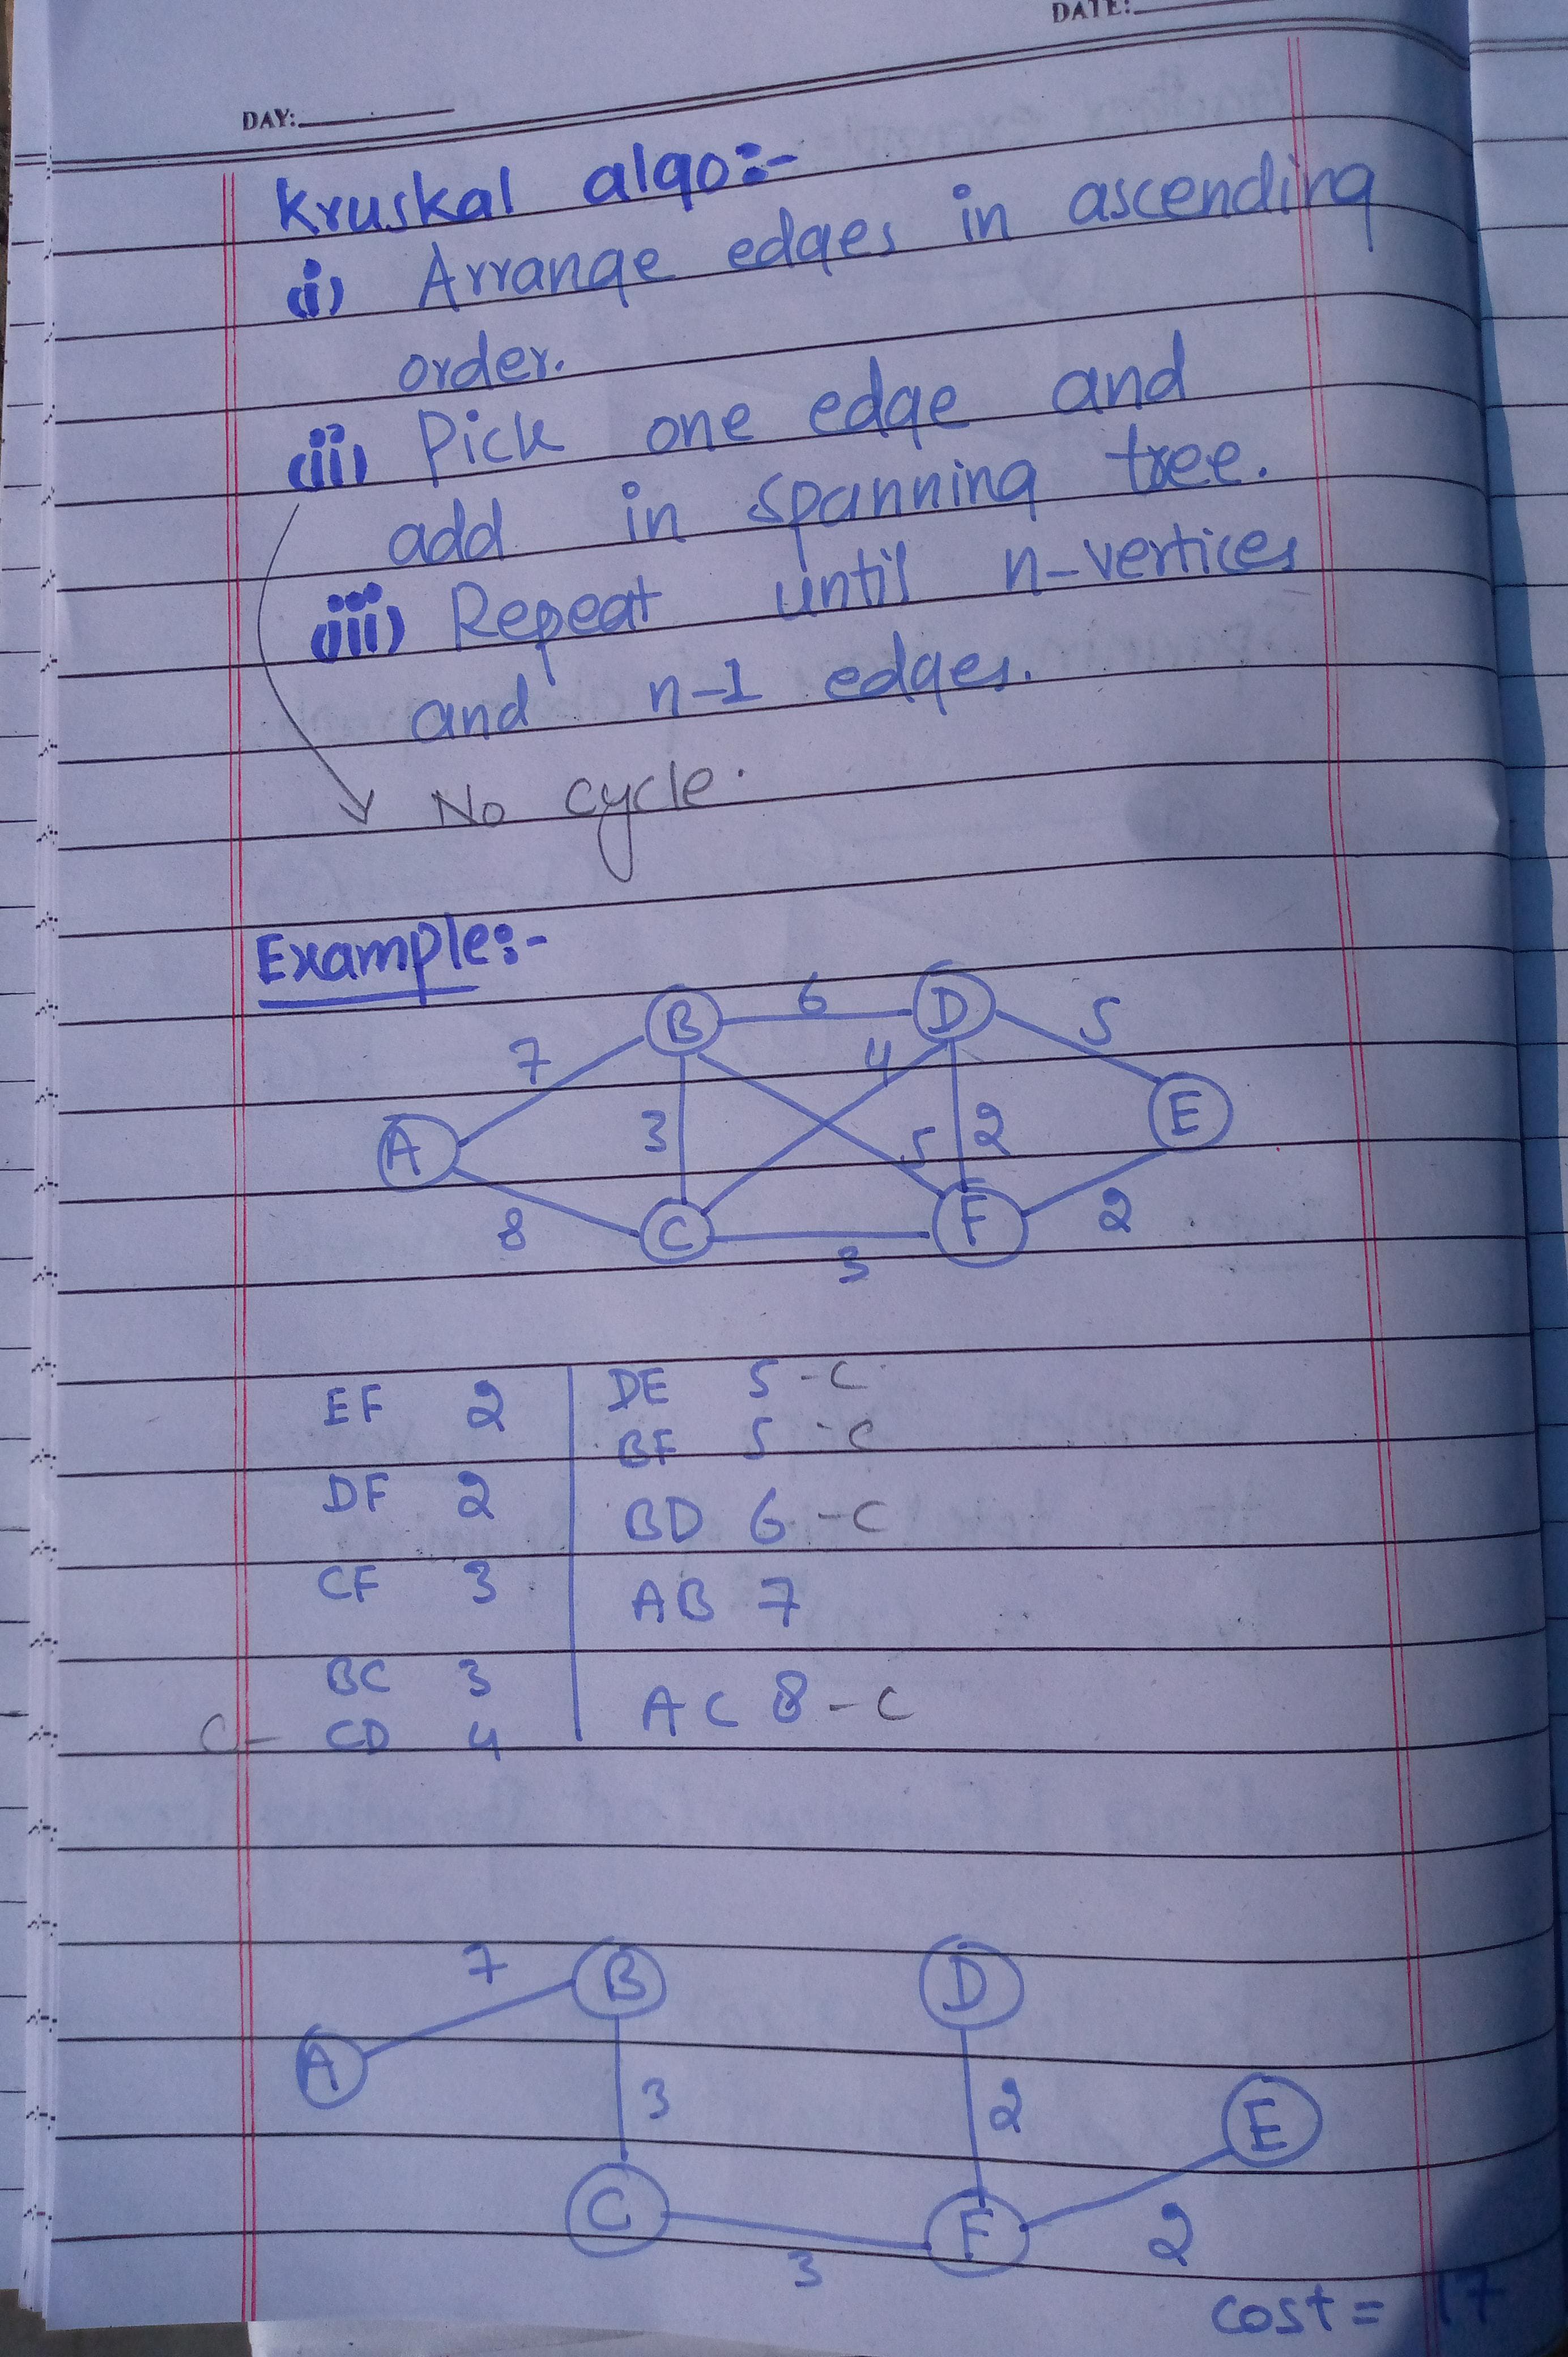 DATE:
DAY:
Kruskal algo:-
(i) Arrange edges in ascending
order.
(ii) Pick one edge and
add in spanning tree.
(iii) Repeat until n-vertices
and n-1 edges.
No cycle.
Example:-
6
B D
7 4 5
A 3 5 2 E
8 C F 2
3
EF 2 DE 5 -C
BF 5 -C
DF 2 BD 6 -C
CF 3 AB 7
BC 3 AC 8 -C
C- CD 4
7 B D
A 3 2 E
C F 2
3
cost = 17